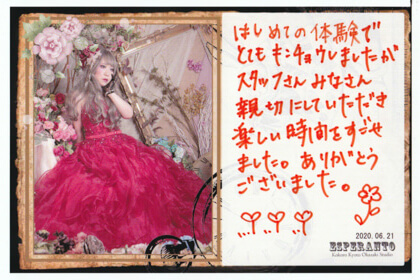 はじめての体験で
とてもキンチョウしましたが
スタッフさん みなさん
親切にしていただき
楽しい時間をすごせ
ました。ありがとう
ございました。
2020.06.21
ESPERANTO
Kokoro Kyoto Okazaki Studio